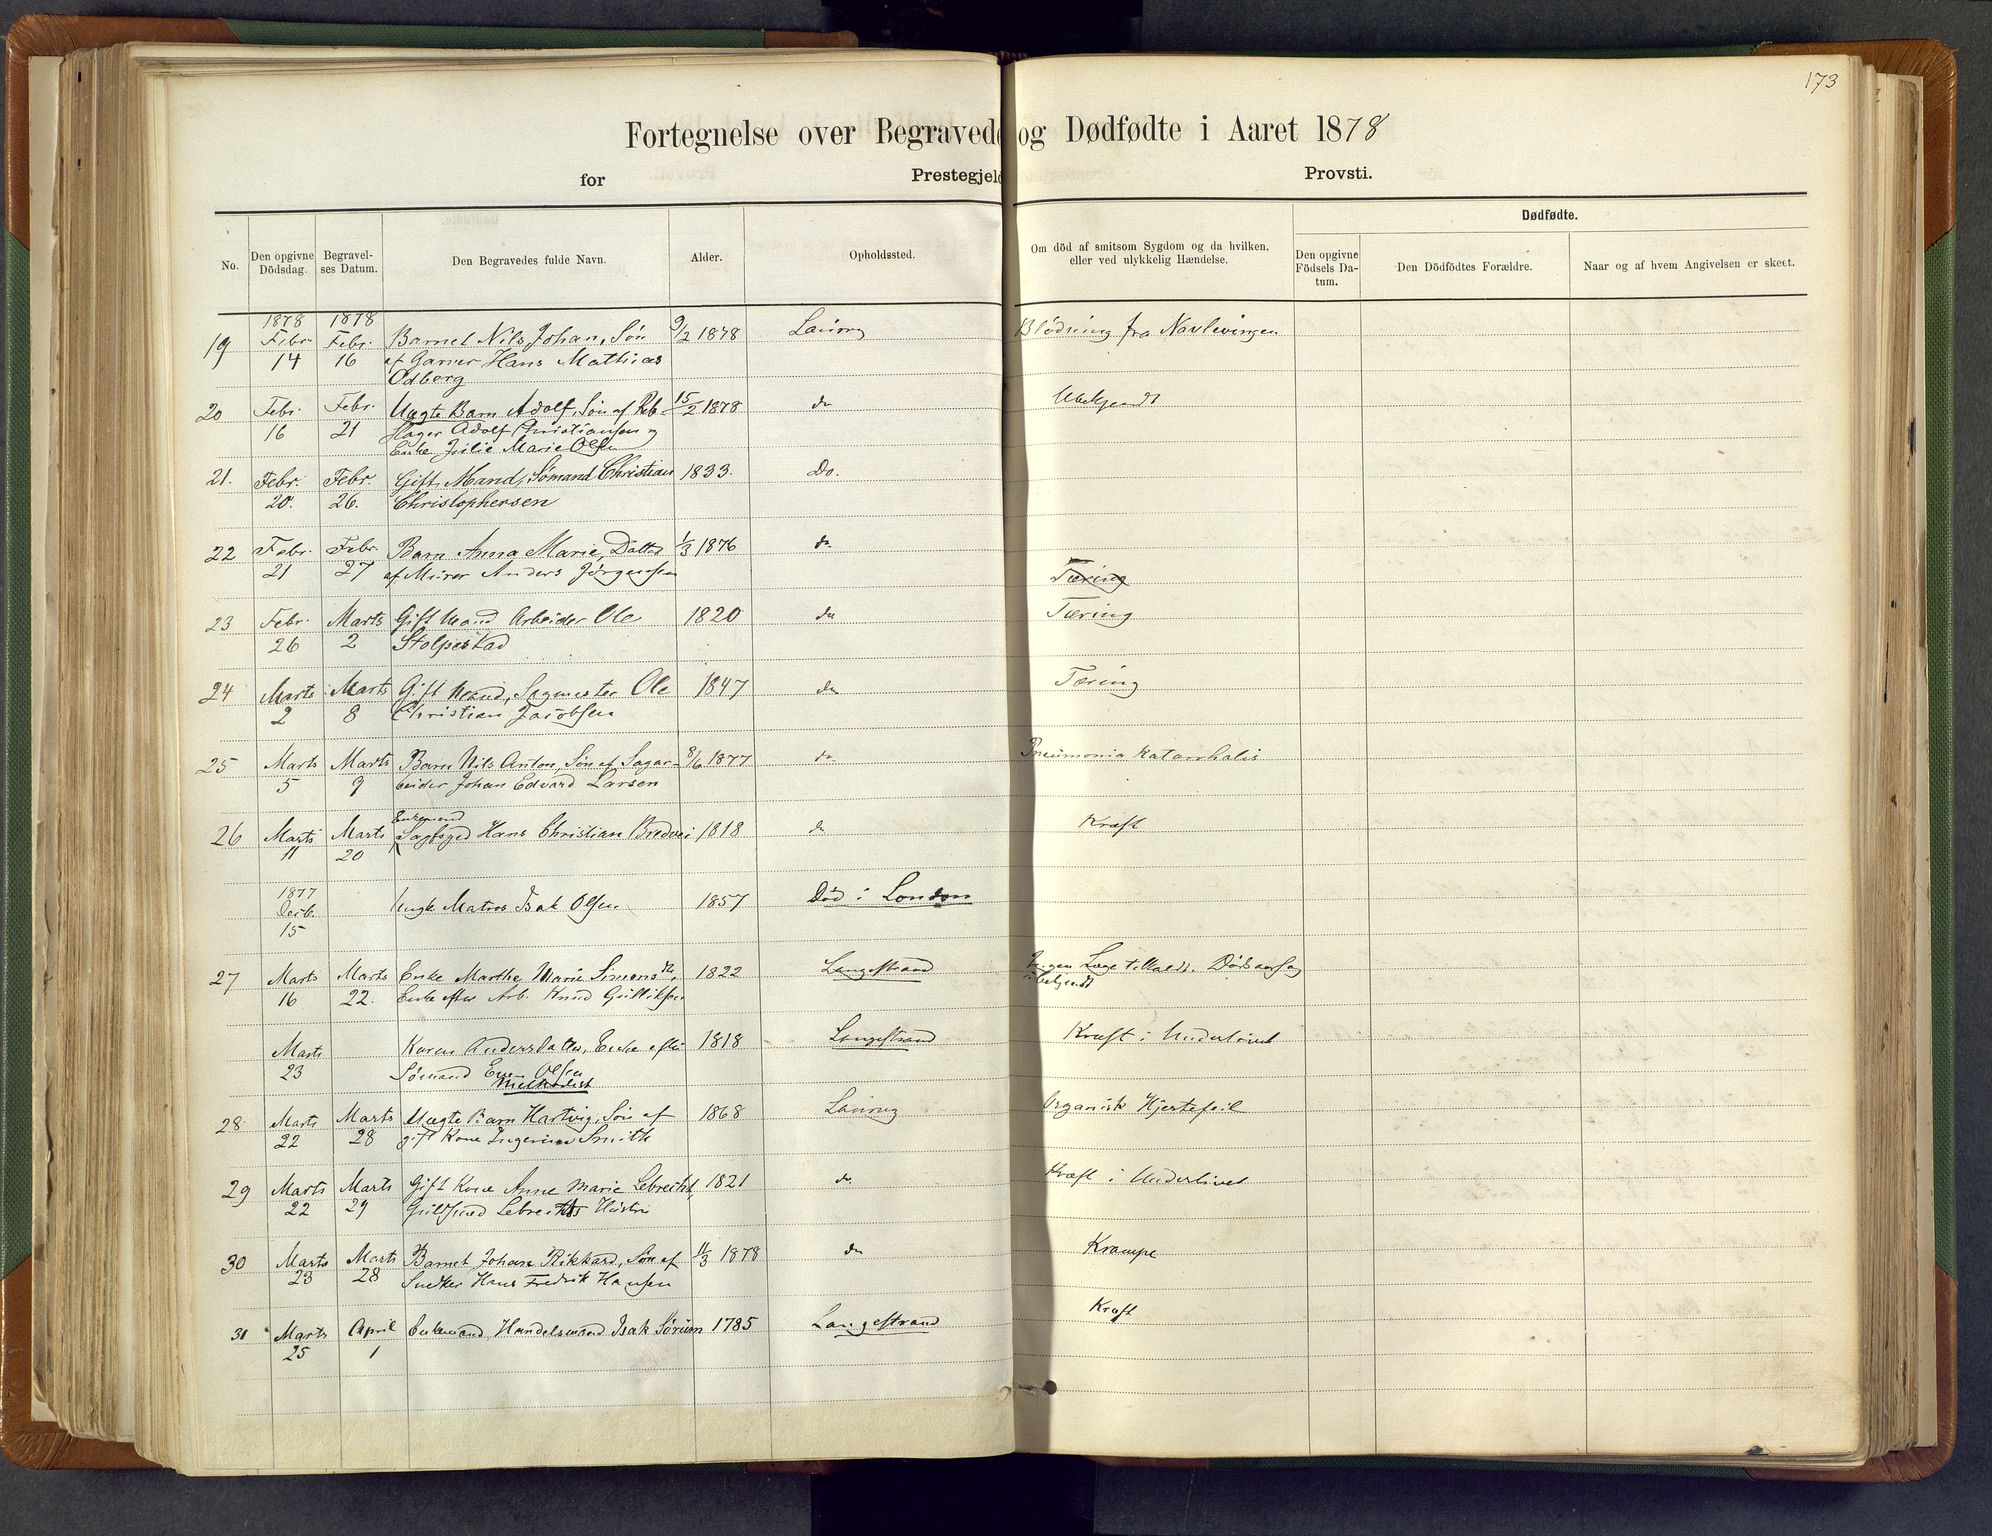 173
Fortegnelse over Begravede og Dødfødte i Aaret 1878
for Prestegjeld Provsti.
No.
Den opgivne Dödsdag.
Begravelses Datum.
Den Begravedes fulde Navn.
Alder.
Opholdssted.
Om död af smitsom Sygdom og da hvilken, eller ved ulykkelig Hændelse.
Dødfødte.
Den opgivne Födsels Datum.
Den Dödfödtes Forældre.
Naar og af hvem Angivelsen er skeet.
1878 1878
19 Febr. Febr. Barnet Nils Johan, Søn 9/2 1878 Laurvig Blödning fra Navlevingen
14 16 af Garver Hans Mathias
Odberg
20 Febr. Febr. Uægte Barn Adolf, Søn af 15/2 1878 do Ubekjendt
16 21 Adolf Christiansen og
Enke Julie Marie Olsen
21. Febr. Febr Gift Mand, Sømand Christian 1833. Do.
20. 26. Christophersen
22 Febr. Febr Barn Anna Marie, Datter 1/3 1876 do
21 27 af Murer Anders Jörgensen Tæring
23 Febr. Marts Gift Mand Arbeider Ole 1820 do Tæring
26 2 Stolpestad
24 Marts Marts Gift Mand, Sagmester Ole 1847 do Tæring
2 8 Christian Jacobsen
25 Marts Marts Barn Nils Anton, Søn af Sagar- 8/6 1877 do Pneumonia katarrhalis
5 9 beider Johan Edvard Larsen
Enkemand
26 Marts Marts Hans Christian Bredvei 1818 do Kræft
11 20
1877
Decb. Ungk Matros Isak Olsen 1857 Död i London
15
27 Marts Marts Enke Marthe Marie Simensdtr, 1822 Langestrand Ingen Læge tilkaldt. Dödsaarsag
16 22. Enke efter Arb. Knud Gulliksen ubekjendt
Marts Karen Andersdatter, Enke efter 1818 Langestrand Kræft i Underlivet
23 Sømand Even Olsen
Methodist
28. Marts Marts Uægte Barn Hartvig, Søn af 1868 Laurvig Organisk Hjertefeil
22 28 gift Kone Ingerine Smith
29 Marts Marts Gift Kone Anne Marie Lebrecht, 1821 do. Kræft i Underlivet
22 29 Guldsmed Lebrechts Hustru
30 Marts Marts Barnet Johan Rikkard, Søn af 11/3 1878 do Krampe
23 28 Snedker Hans Fredrik Hansen
31 Marts April Enkemand, Handelsmand Isak Sörum 1785 Langestrand Kræft
25 1